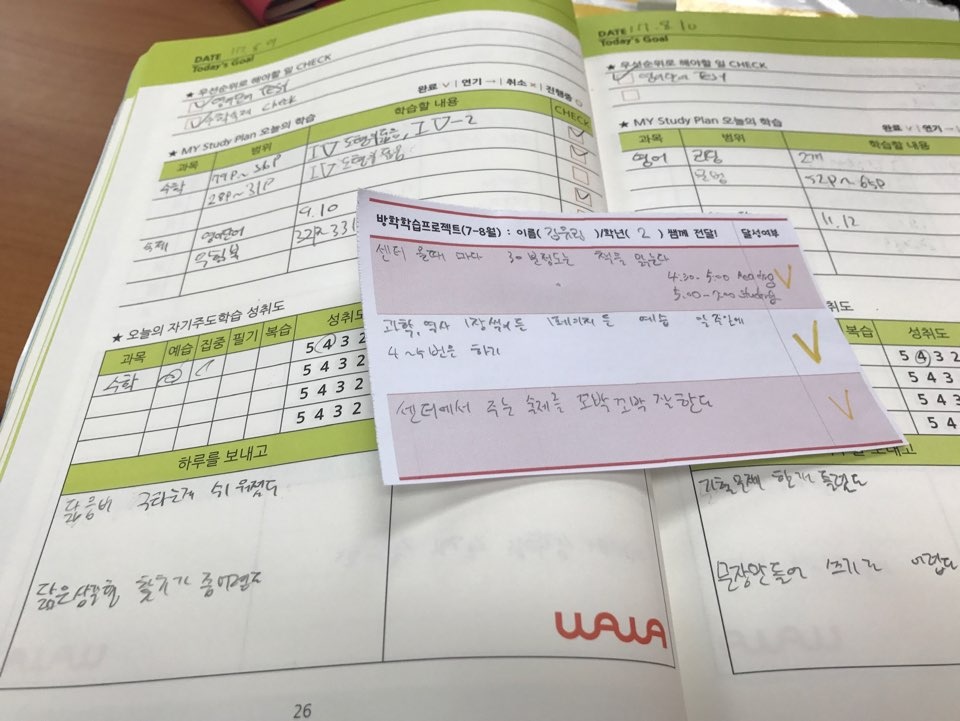 DATE 17.8.9
Today's Goal
★ 우선순위로 해야할 일 CHECK
영어단어 TEST
수학숙제 check
완료 ∨ | 연기 → | 취소 × | 진행중 ○
★ MY Study Plan 오늘의 학습
과목 범위 학습할 내용 CHECK
수학 79P~36P IV 도형의 닮음, IV-2
28P~31P IV 도형의 닮음
숙제 영어단어 9.10
방학학습프로젝트(7-8월) : 이름( )/학년( 2 ) 쌤께 전달! 달성여부
센터 올때 마다 30분정도는 책을 읽는다
4:30-5:00 Reading
5:00-7:00 studying
과학, 역사 1장씩 또는 1페이지 를 예습 일주일에
4~5번은 하기
센터에서 주는 숙제를 꼬박꼬박 잘한다
★ 오늘의 자기주도학습 성취도
과목 예습 집중 필기 복습 성취도
수학 5 4 3 2
5 4 3 2
5 4 3 2
5 4 3 2
하루를 보내고
닮음비 구하는게 쉬워졌다
닮은삼각형 찾기가 좀 어렵다
WAWA
26
DATE 17.8.10
Today's Goal
★ 우선순위로 해야할 일 CHECK
영어단어 TEST
★ MY Study Plan 오늘의 학습
완료 ∨ | 연기
과목 범위 학습할 내용
영어 리딩 2개
문법 52p~65p
11, 12
복습 성취도
5 4 3 2
5 4 3
5 4 3
5 4
보내고
문장만들어 쓰기가 어렵다